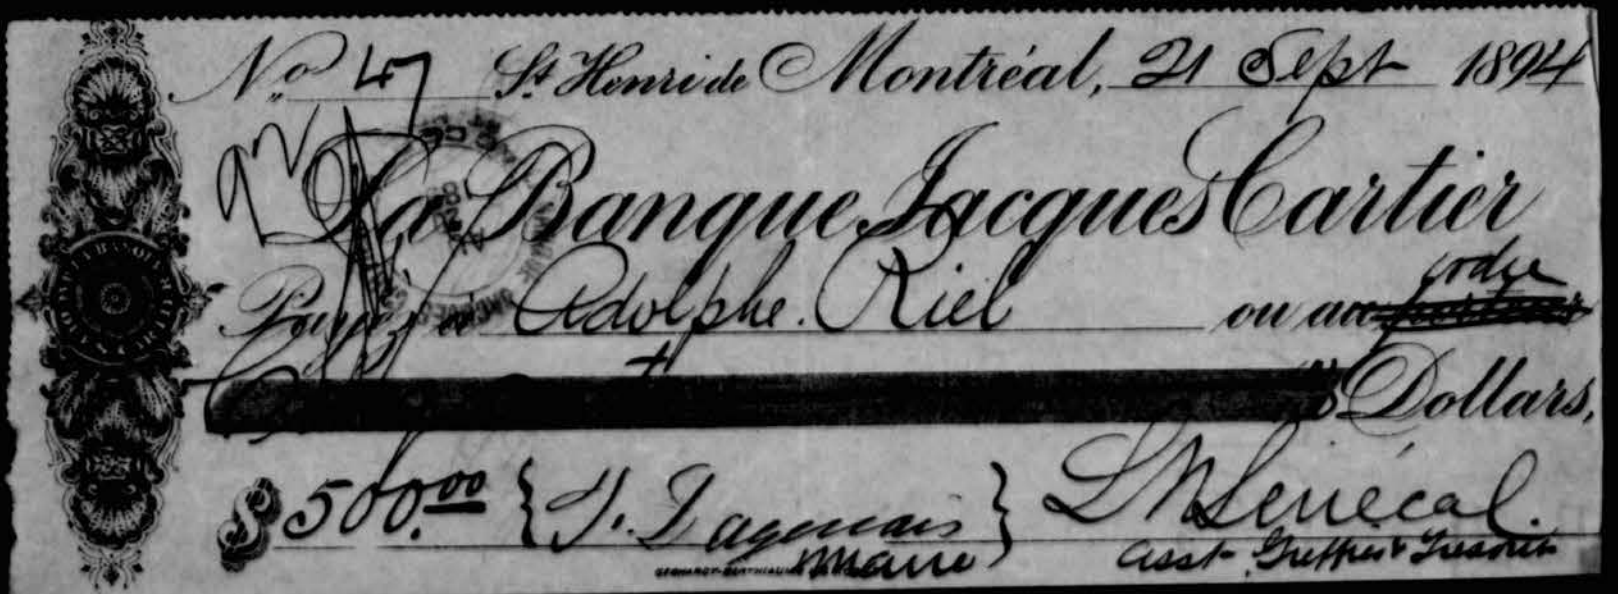 No. 47 St. Henri de Montréal, 21 Sept 1894
92
La Banque Jacques Cartier
Payez à Adolphe Riel ou au porteur ordre
Dollars,
$500.00 { Dagenais } LN Senécal.
Maire Asst. Greffier & Tresorier